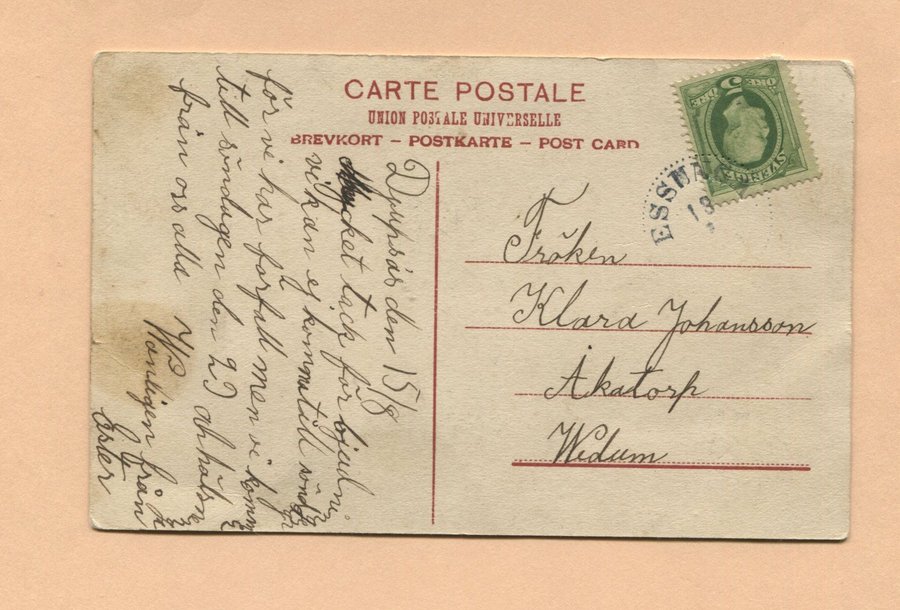 CARTE POSTALE
UNION POSTALE UNIVERSELLE
BREVKORT – POSTKARTE – POST CARD
5 ÖRE
SVERIGE
ESSUNGA
Djupsås den 15/8
Mycket tack för bjudni
vi kan ej komma till sönda
för vi har forfall men vi komm
till söndagen den 29
från oss alla
Vänligen från
Ester
Fröken
Klara Johansson
Åkatorp
Wedum